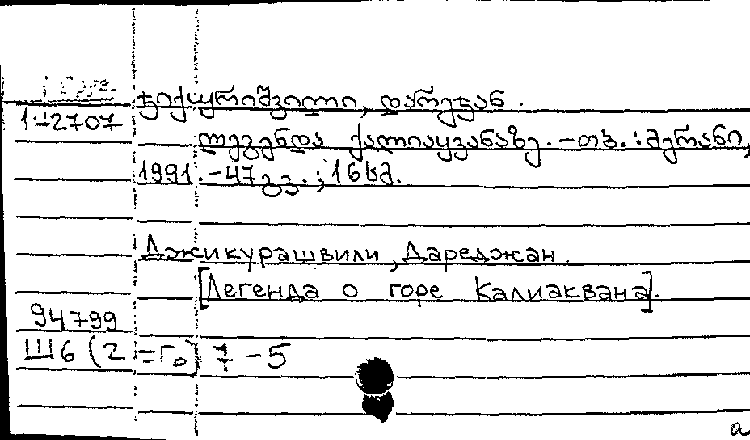 ჯიქურიშვილი, დარეჯან.
1-2707
ლეგენდა ქალიაყვანაზე. -თბ. : მერანი,
1991. -47გვ. ; 16სმ.
Джикурашвили, Дареджан.
[Легенда о горе Калиаквана].
94799
Ш6 (2=Го) 7 -5
а